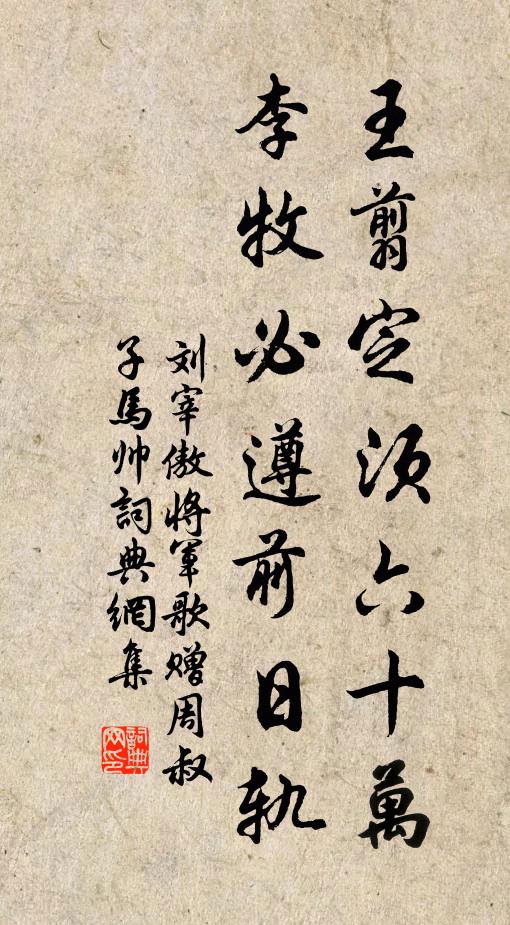 王翦定须六十萬
李牧必遵前日軌
刘宰傲将軍歌赠周叔
子馬帅詞典網集
詞典網印